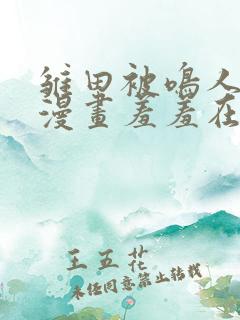 雏田被鸣人
漫畫羞羞在
王五花
未经同意禁止转载